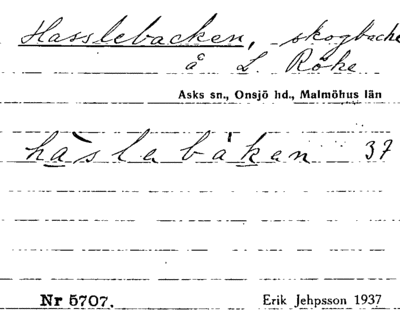 Hasslebacken, skogbacke
å L. Röke
Asks sn., Onsjö hd., Malmöhus län
hàslebáken 37
Nr 5707. Erik Jehpsson 1937